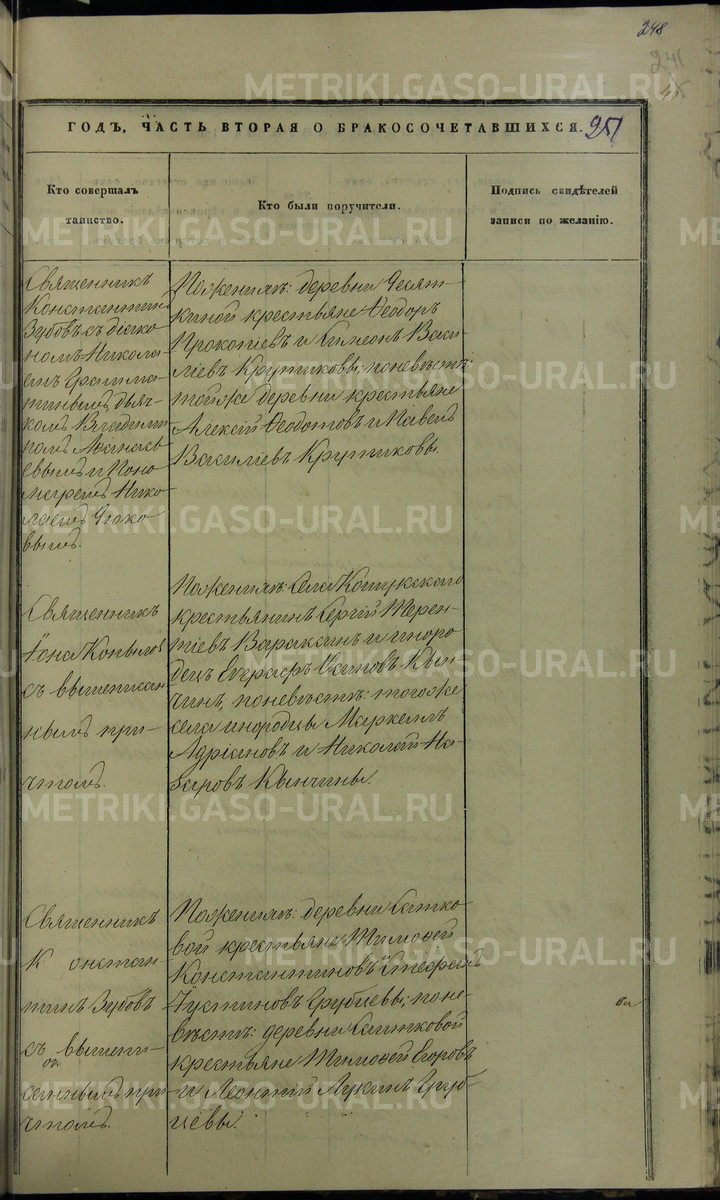 248
241
ГОДЪ, ЧАСТЬ ВТОРАЯ О БРАКОСОЧЕТАВШИХСЯ.
251
Кто совершалъ
таинство.
Кто были поручители.
Подпись свидѣтелей
записи по желанію.
Священникъ
Константинъ
Зубовъ съ діако
номъ Никола
емъ
дьяч
комъ Владими
ромъ Аѳанась
евымъ и Поно
маремъ Нико
лаемъ
вымъ.
По женихѣ: деревни Десят
киной крестьяне Ѳеодоръ
Прокопіевъ и Симеонъ Васи
ліевъ Крутиковы; по невѣстѣ:
той же деревни крестьяне
Алексій Ѳедотовъ и Павелъ
Василіевъ Крутиковы.
Священникъ
Іона Копыловъ
съ вышеписан
нымъ при-
чтомъ.
По женихѣ: Села Кошукскаго
крестьянинъ Сергій Терен-
тіевъ Вараксинъ и иноро
децъ Евграфъ Осиповъ Кын
чинъ; по невѣстѣ: того же
села инородцы Маркеллъ
Адріановъ и Николай На-
заровъ Кынчины.
Священникъ
Констан
тинъ Зубовъ
съ вышепи-
саннымъ при
чтомъ.
По женихѣ: деревни Сатко
вой крестьяне Тимоѳей
Константиновъ и Стефанъ
Іустиновъ Грубцевы; по не-
вѣстѣ: деревни Саитковой
крестьяне Тимоѳей Егоровъ
и Леонтій Лукинъ Груб
цевы.
METRIKI.GASO-URAL.RU